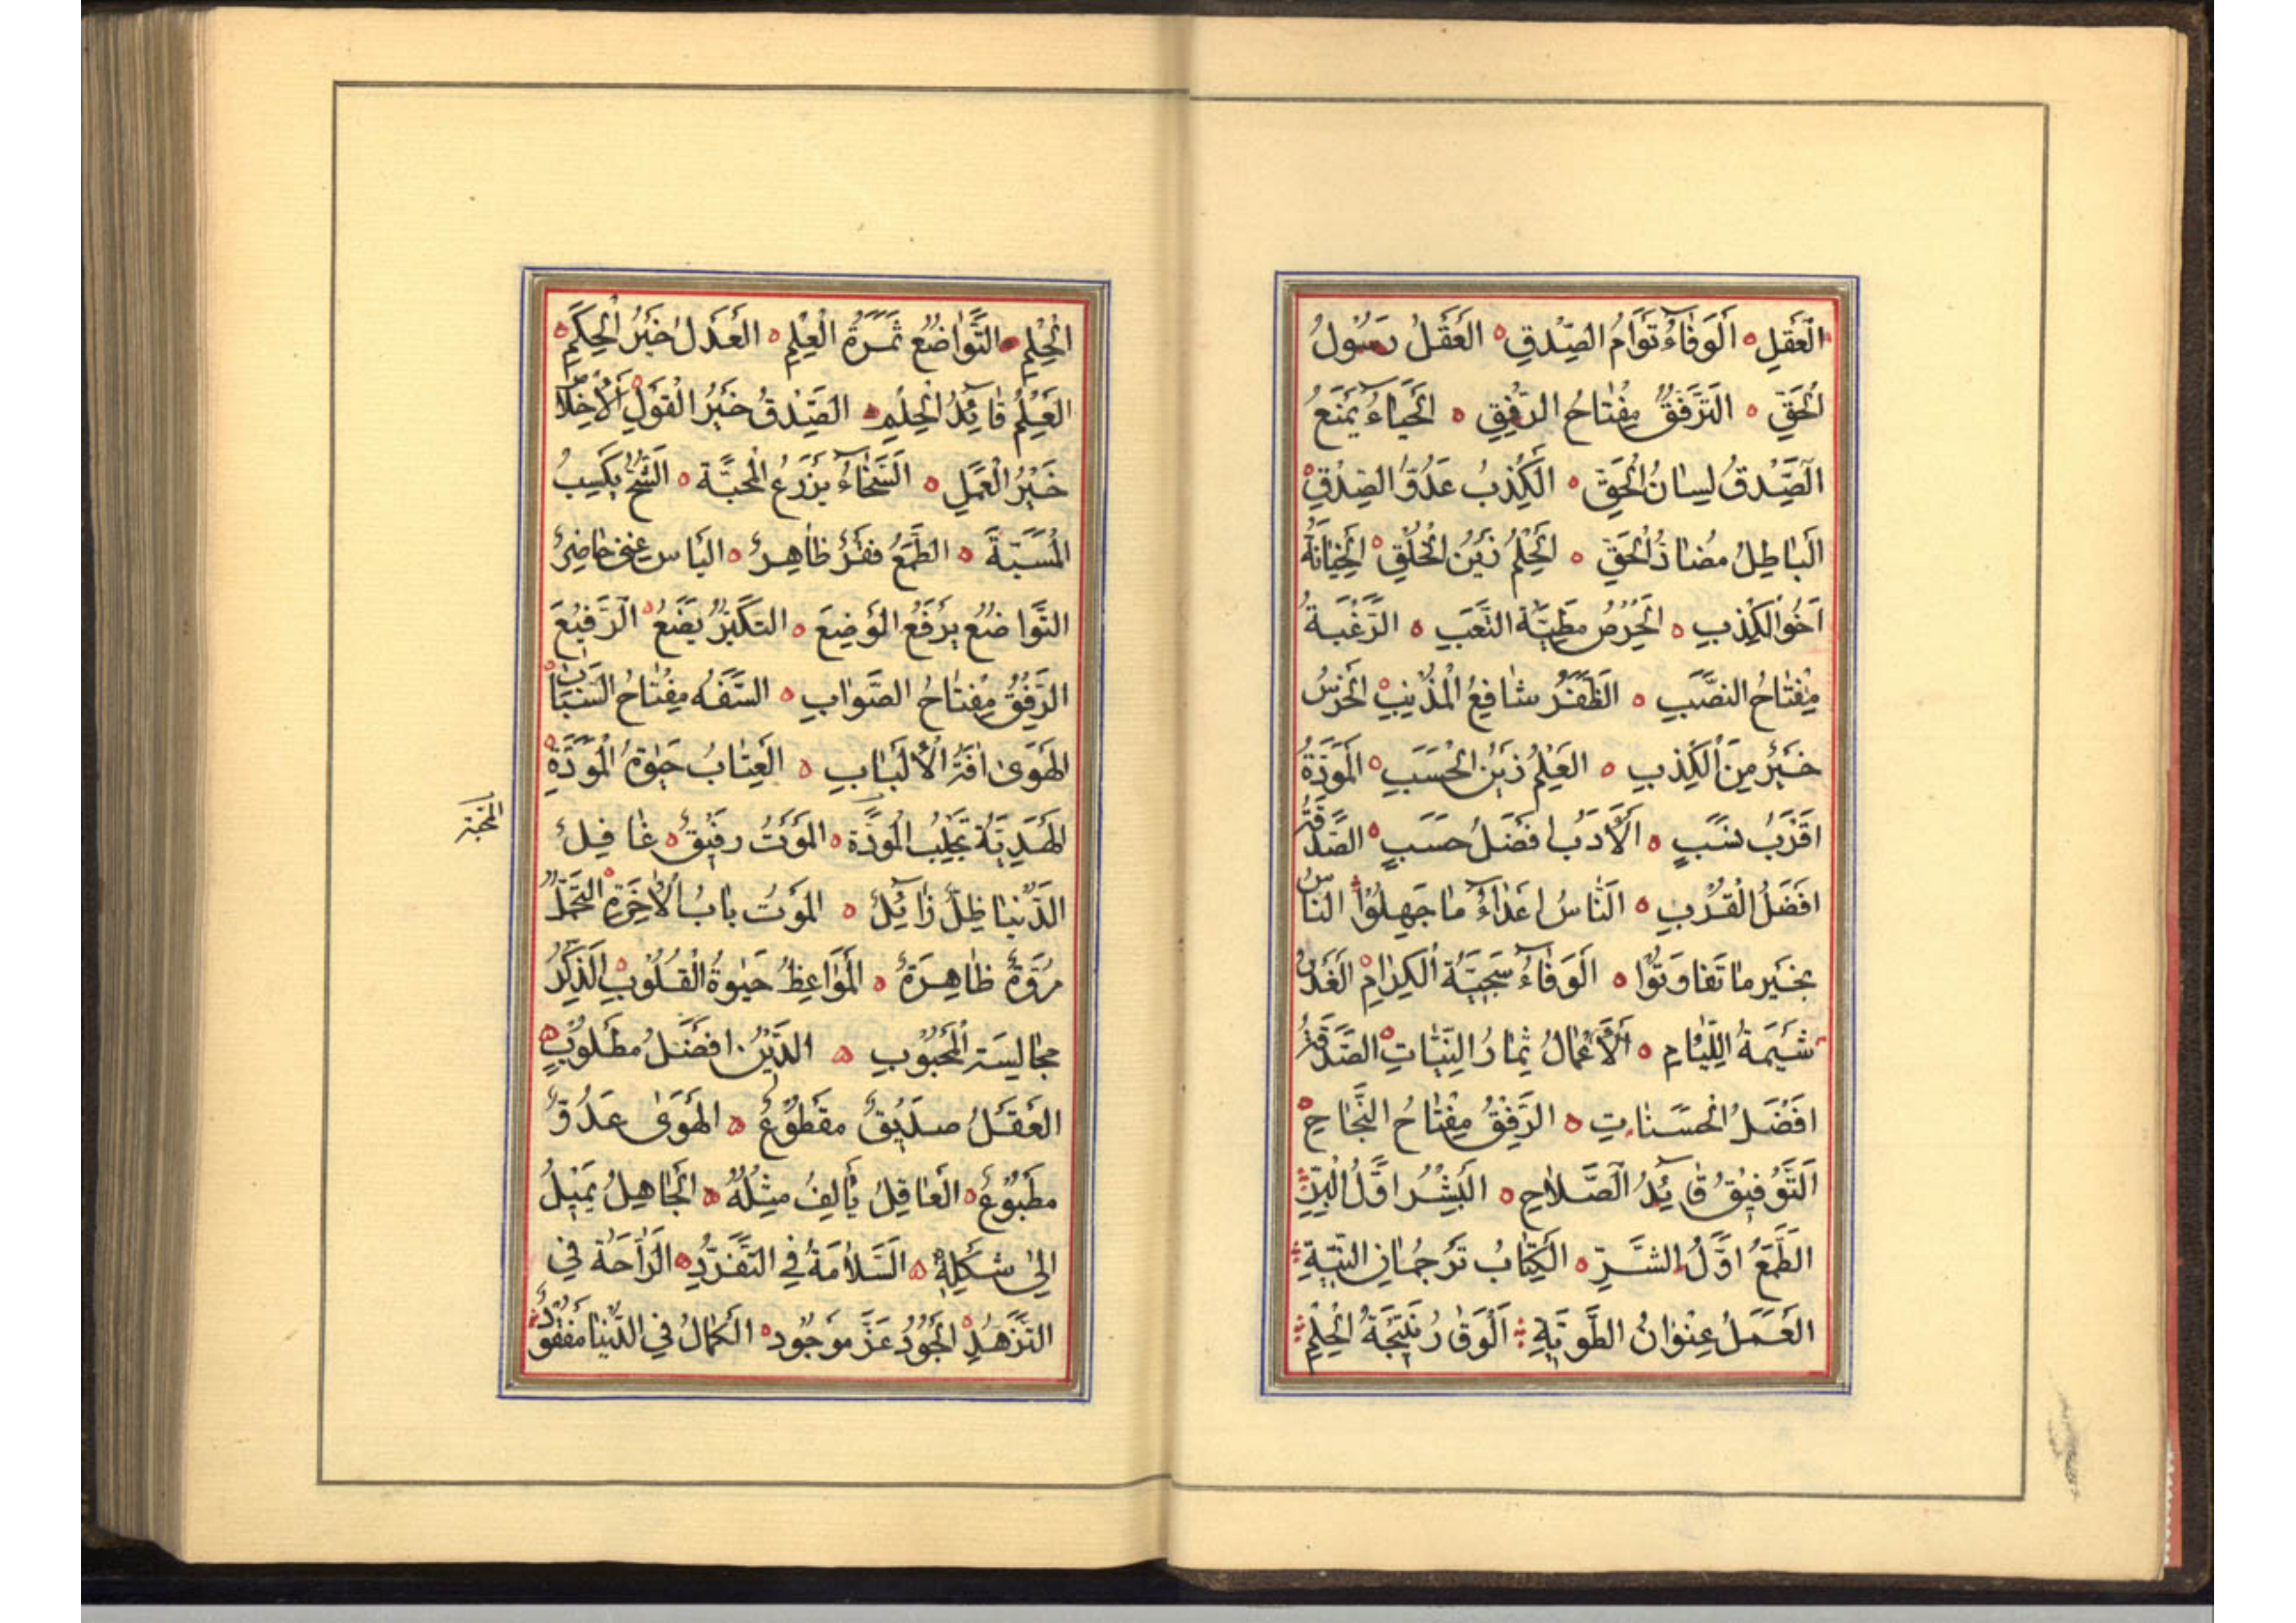 العَقلِ ٥ اَلوَفاءُ تَوَامُ الصِّدقِ ٥ العَقلُ رَسُولُ
الحَقِّ ٥ التَرَفُّقُ مِفتاحُ الرِّفقِ ٥ الحَياءُ يَمنَعُ
الصِّدقُ لِسانُ الحَقِّ ٥ الكِذبُ عَدُوُّ الصِدقِ ٥
الباطِلُ مُضادُّ الحَقِّ ٥ الحِلمُ زَينُ الخُلقِ ٥ الخِيانَةُ
اَخُو الكِذبِ ٥ الحِرصُ مَطِيَّة التَّعَبِ ٥ الرَّغبَةُ
مِفتاحُ النَصَبِ ٥ الظَفَرُ شافِعُ المُذنِبِ ٥ الخَرَسُ
خَيرٌ مِنَ الكِذبِ ٥ العِلمُ زَينُ الحَسَبِ ٥ المَوَدَّةُ
اَقرَبُ نَسَبٍ ٥ الأَدَبُ افضَلُ حَسَبٍ ٥ الصَّدَقَةُ
افضَلُ القُرَبِ ٥ اَلنّاسُ اعداءُ ما جَهِلُوا الناسُ
بِخَيرٍ ما تَفاوَتُوا ٥ الوَفاءُ سَجِيَّة الكِرامِ ٥ الغَدرُ
شيمَةُ اللِّئامِ ٥ الأَعمالُ ثِمارُ النِيّاتِ ٥ الصَّدَقَةُ
افضَلُ الحَسَناتِ ٥ الرِّفقُ مِفتاحُ النَّجاحِ ٥
اَلتَّوفيقُ قائِدُ الصَّلاحِ ٥ البِشرُ اوَّلُ البِرِّ
الطَّمَعُ اوَّلُ الشَّرِّ ٥ الكِتابُ تَرجُمانِ النِيَّةِ
العَمَلُ عِنوانُ الطَّوِيَّةِ اَلوَقارُ نَتيجَةُ الحِلمِ
الحِلمِ ٥ التَّواضُع ثَمَرَةُ العِلمِ ٥ العَدلُ خَيرُ الحِكَمِ ٥
العِلمُ قائِدُ الحِلمِ ٥ الصِّدقُ خَيرُ القَولِ ٥ الأِخلاص
خَيرُ العَمَلِ ٥ السَّخاءُ يَزرَعُ المَحَبَّة ٥ الشُّحُّ يَكسِبُ
المَسَبَّةَ ٥ الطَّمَعُ فَقرٌ ظاهِرٌ ٥ الياس غِنى حاضِرٌ
التَّواضُع يَرفَعُ الوَضِيعَ ٥ التَكَبُّرُ يَضَعُ ٥ الرَّفيعَ
الرِّفقُ مِفتاحُ الصَّوابِ ٥ السَّفَهُ مِفتاحُ السِّبابِ ٥
الهَوَى افَةُ الأَلبابِ ٥ العِتابُ حَيوةُ المَوَدَّةِ ٥
الهَدِيَّة تَجلِبُ المَوَدَّة ٥ المَوتُ رَفيقٌ ٥ غافِلٌ
المَحَبَّة
الدُّنيا ظِلٌّ زائِلٌ ٥ المَوتُ بابُ الأخِرَةِ ٥ التَجَمُّلُ
مُرُوَّةٌ ظاهِرَةٌ ٥ المَواعِظُ حَيوةُ القُلُوبِ ٥ الذِّكرُ
مجالِسَة المَحبُوبِ ٥ الدّينُ افضَلُ مَطلُوبٍ ٥
العَقلُ صَديقٌ مَقطُوعٌ ٥ الهَوَى عَدُوٌّ
مَطبُوعٌ ٥ العاقِلُ يَألِفُ مِثلَهُ ٥ الجاهِلُ يَميلُ
اِلى شَكلِهِ ٥ السَّلامَةُ فِي التَفَرُّدِ ٥ الرّاحَة في
التَّزَهُّدِ ٥ الجُودُ عَزَّ مَوجُود ٥ الكَمالُ فِي الدُّنيا مَفقُودٌ